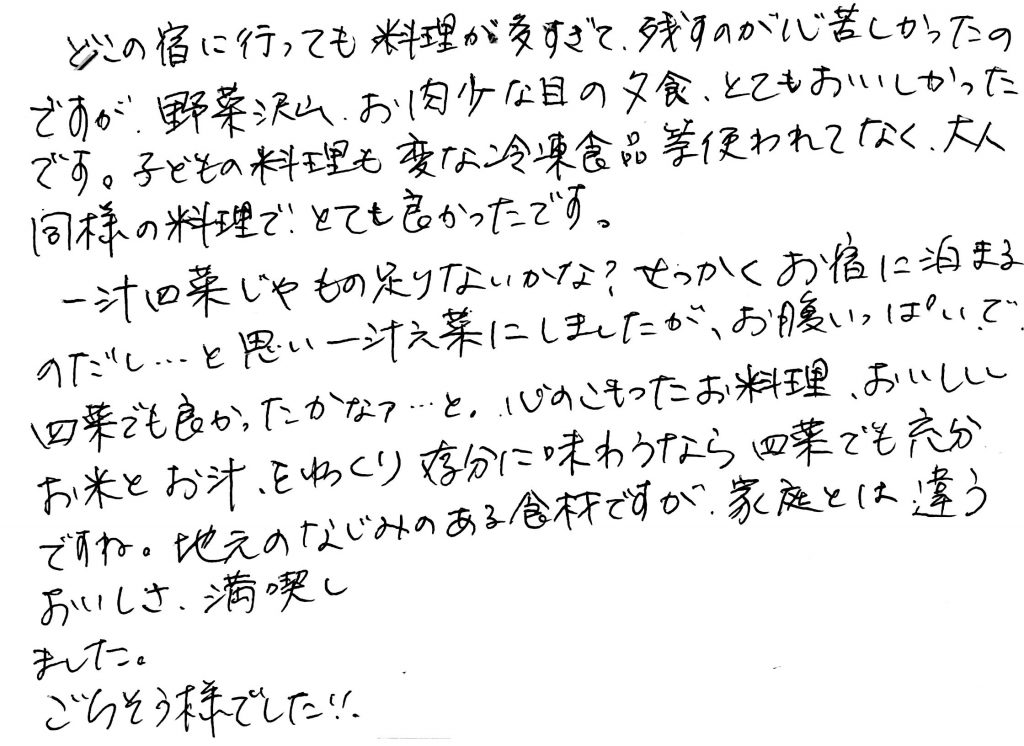 どこの宿に行っても料理が多すぎて、残すのが心苦しかったの
ですが、野菜沢山、お肉少な目の夕食、とてもおいしかった
です。子どもの料理も変な冷凍食品等使われてなく、大人
同様の料理で、とても良かったです。
一汁四菜じゃもの足りないかな？せっかくお宿に泊まる
のだし…と思い一汁六菜にしましたが、お腹いっぱいで、
四菜でも良かったかなァ…と。心のこもったお料理、おいしい
お米とお汁、をゆっくり存分に味わうなら四菜でも充分
ですね。地元のなじみのある食材ですが、家庭とは違う
おいしさ、満喫し
ました。
ごちそう様でした!!